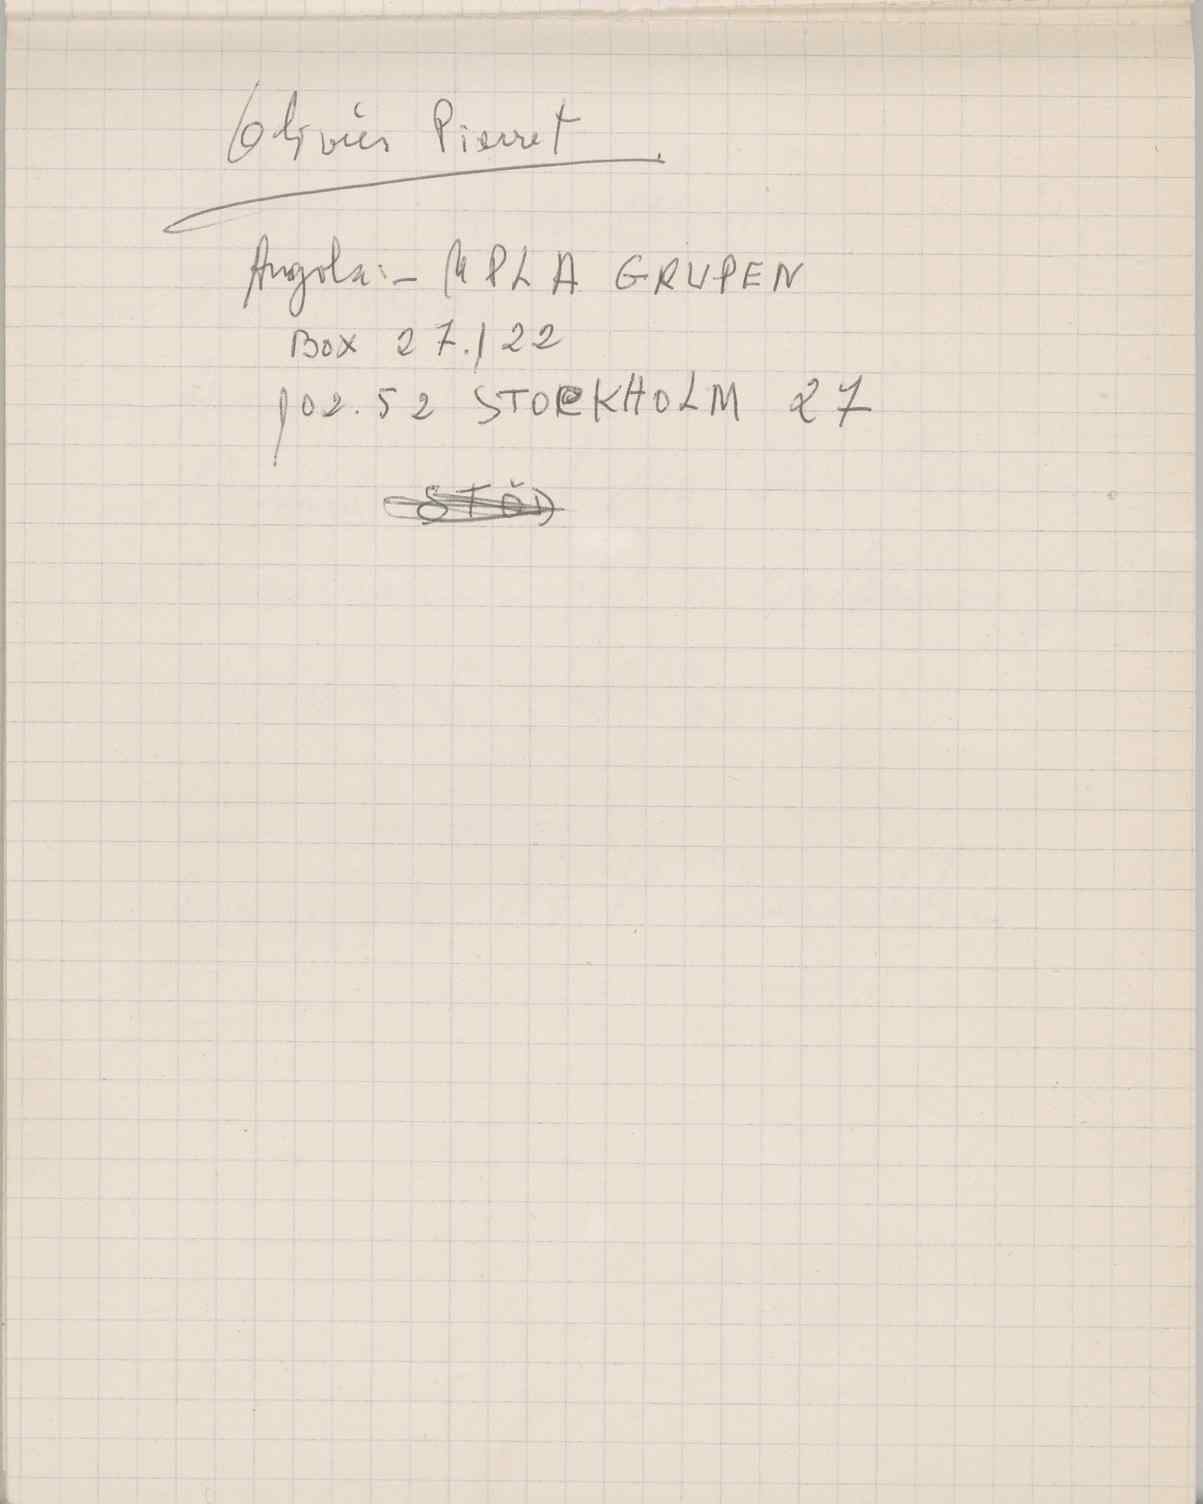 Olivier Pierret
Angola:- MPLA GRUPEN
Box 27.122
102.52 STOCKHOLM 27
STÖD